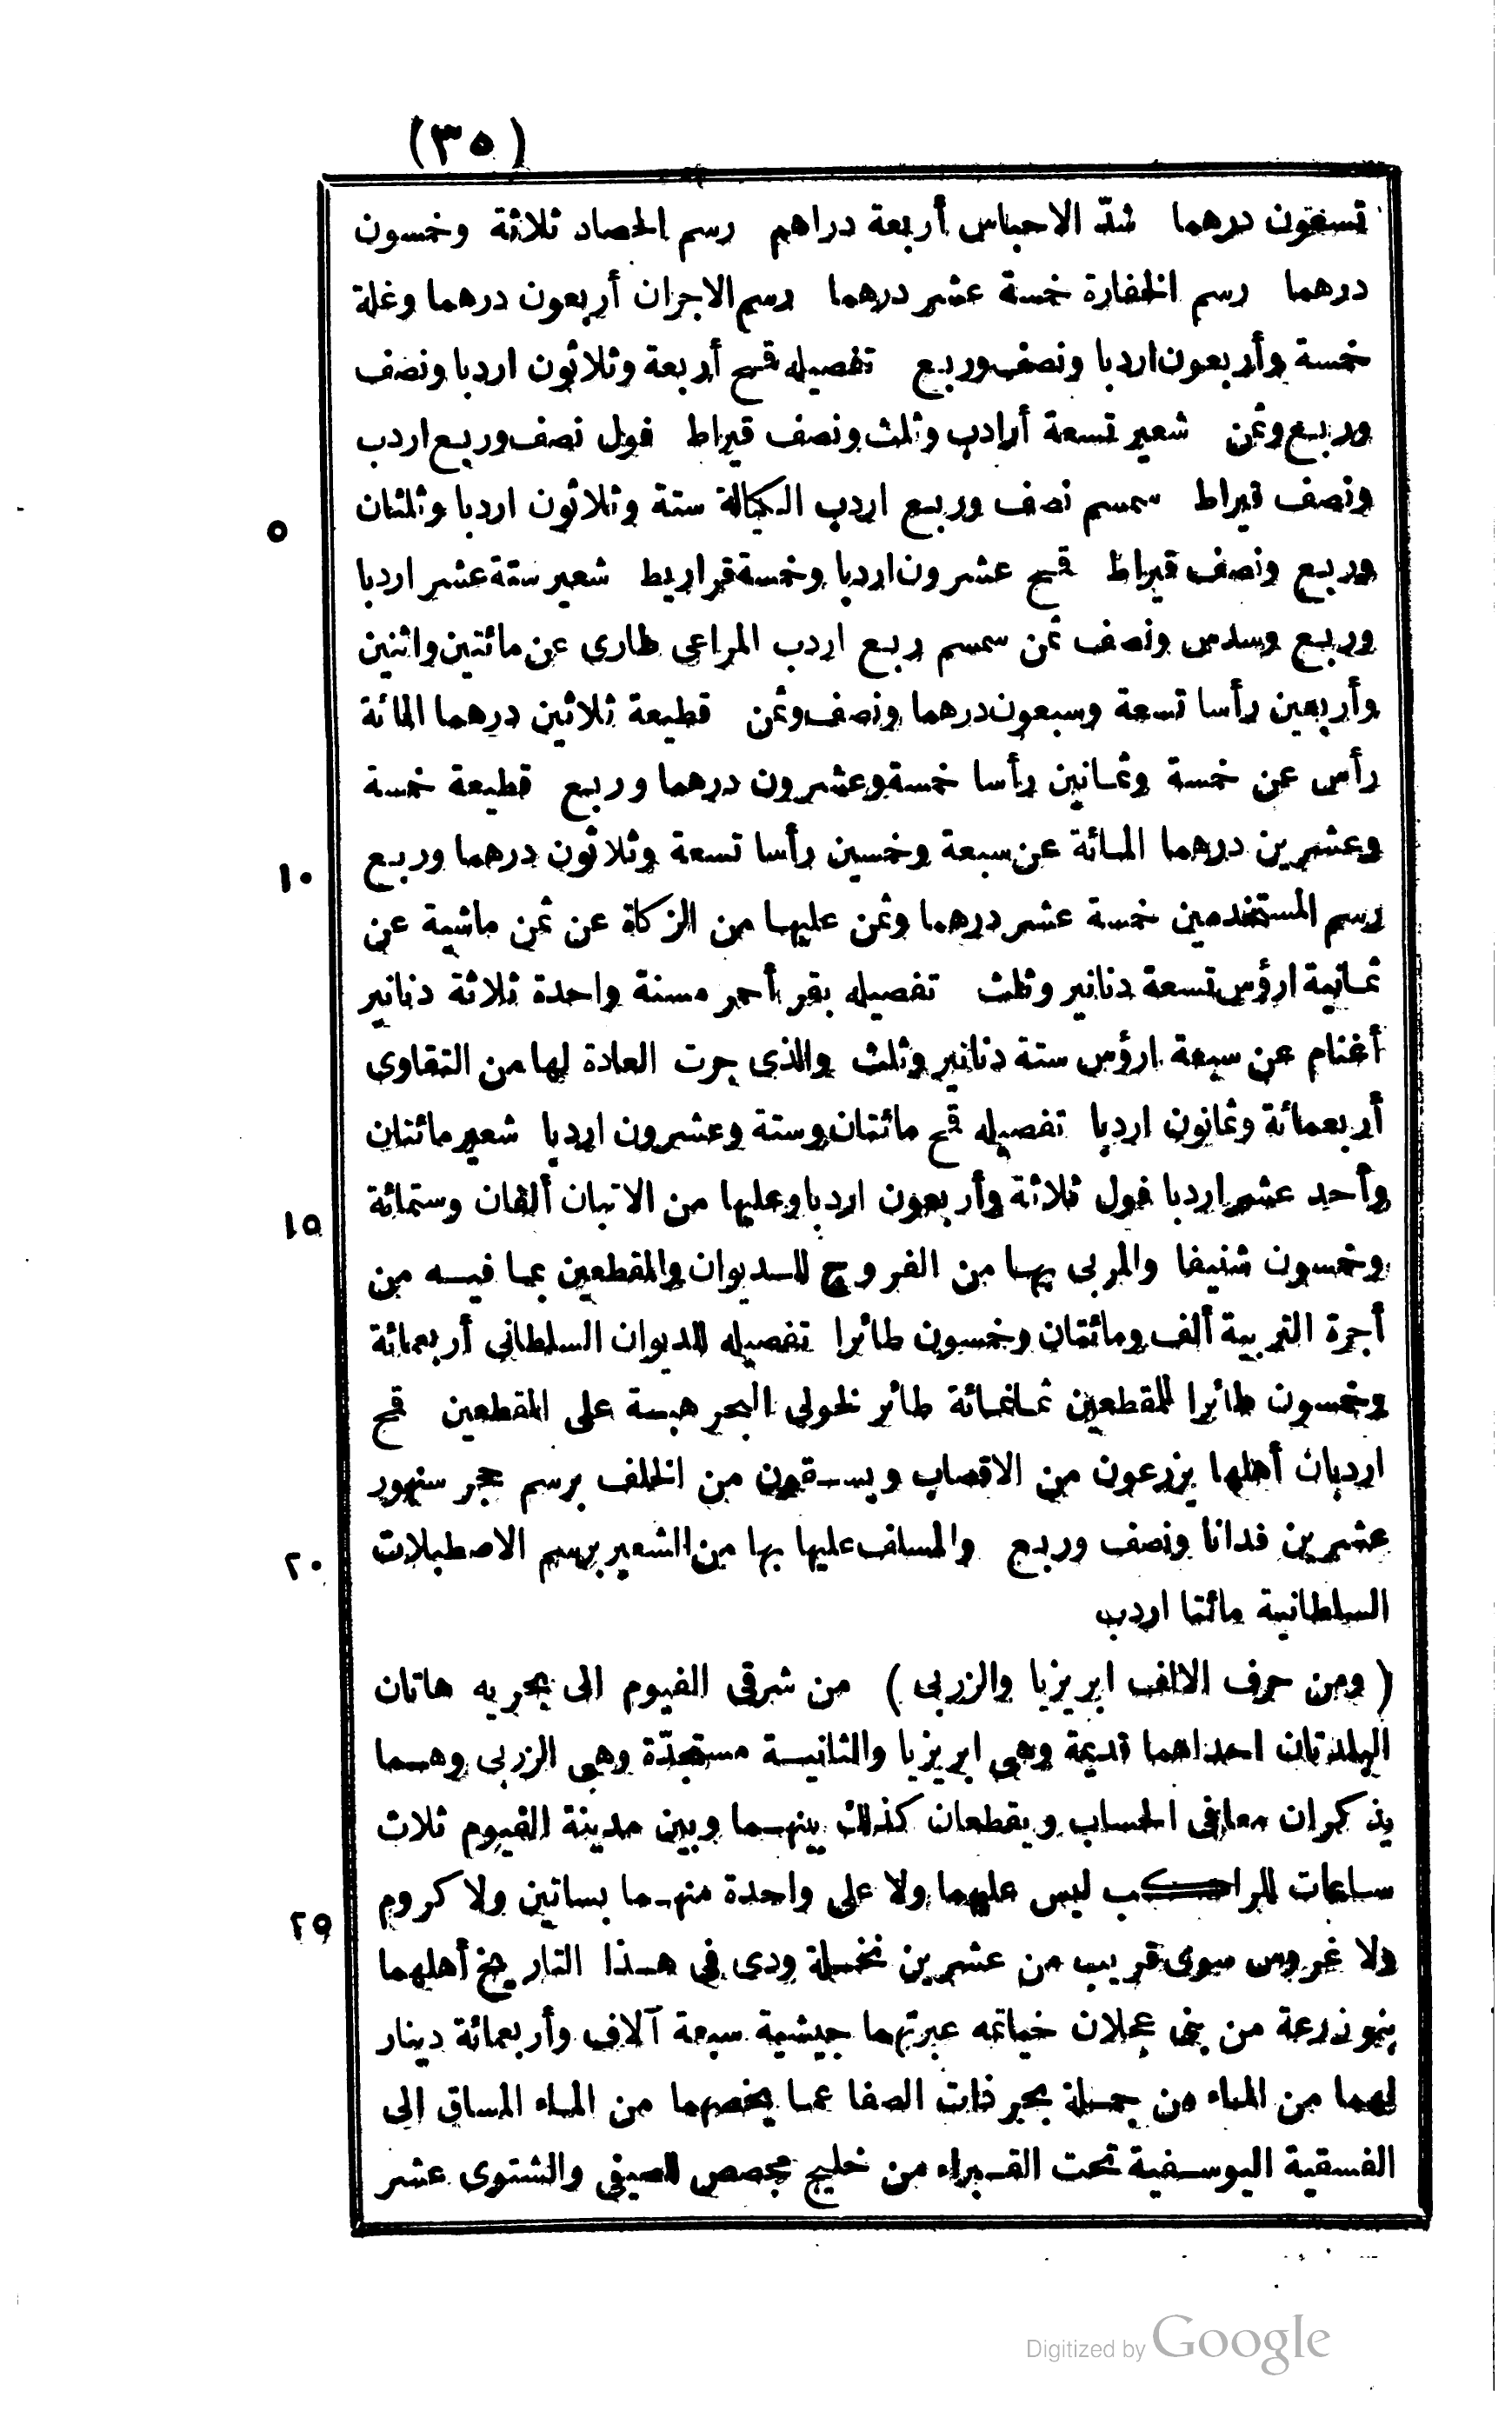 (٣٥)
تسعون درهما شدّ الاحباس أربعة دراهم رسم الحصاد ثلاثة وخمسون
درهما رسم الخفارة خمسة عشر درهما رسم الاجران أربعون درهما وغلة
خمسة وأربعون اردبا ونصف وربع تفصيله قمح أربعة وثلاثون اردبا ونصف
وربع وثمن شعير تسعة أرادب وثلث ونصف قيراط فول نصف وربع اردب
ونصف قيراط سمسم نصف وربع اردب الكيالة ستة وثلاثون اردبا وثلثان
٥
وربع ونصف قيراط قمح عشرون اردبا وخمسة قراريط شعير ستة عشر اردبا
وربع وسدس ونصف ثمن سمسم ربع اردب المراعى طارى عن مائتين واثنين
وأربعين رأسا تسعة وسبعون درهما ونصف وثمن قطيعة ثلاثين درهما المائة
رأس عن خمسة وثمانين رأسا خمسة وعشرون درهما وربع قطيعة خمسة
وعشرين درهما المائة عن سبعة وخمسين رأسا تسعة وثلاثون درهما وربع
١٠
رسم المستخدمين خمسة عشر درهما وثمن عليها من الزكاة عن ثمن ماشية عن
ثمانية ارؤس تسعة دنانير وثلث تفصيله بقر أحمر مسنة واحدة ثلاثة دنانير
أغنام عن سبعة ارؤس ستة دنانير وثلث والذى جرت العادة لها من التقاوى
أربعمائة وثمانون اردبا تفصيله قمح مائتان وستة وعشرون اردبا شعير مائتان
وأحد عشر اردبا فول ثلاثة وأربعون اردبا وعليها من الاتبان ألفان وستمائة
١٥
وخمسون شنيفا والمربى بها من الفروج للديوان والمقطعين بما فيه من
أجرة التربية ألف ومائتان وخمسون طائرا تفصيله للديوان السلطانى أربعمائة
وخمسون طائرا للمقطعين ثمانمائة طائر لخولى البحر هبة على المقطعين قمح
اردبان أهلها يزرعون من الاقصاب ويسقون من الخلف برسم حجر سنهور
عشرين فدانا ونصف وربع والمسلف عليها بها من الشعير برسم الاصطبلات
٢٠
السلطانية مائتا اردب
(ومن حرف الالف ابريزيا والزربى) من شرقى الفيوم الى بحريه هاتان
البلدتان احداهما قديمة وهى ابريزيا والثانية مستجدّة وهى الزربى وهما
يذكران معا فى الحساب ويقطعان كذلك بينهما وبين مدينة الفيوم ثلاث
ساعات للراكب ليس عليهما ولا على واحدة منهما بساتين ولا كروم
٢٥
ولا غروس سوى قريب من عشرين نخلة ودى فى هذا التاريخ أهلهما
بنو زرعة من بنى عجلان خياتمه عبرتهما جيشية سبعة آلاف وأربعمائة دينار
لهما من الماء من جملة بحر ذات الصفا عما يخصهما من الماء المساق الى
الفسقية اليوسفية تحت القبراء من خليج مجصص للصيفى والشتوى عشر
Digitized by Google